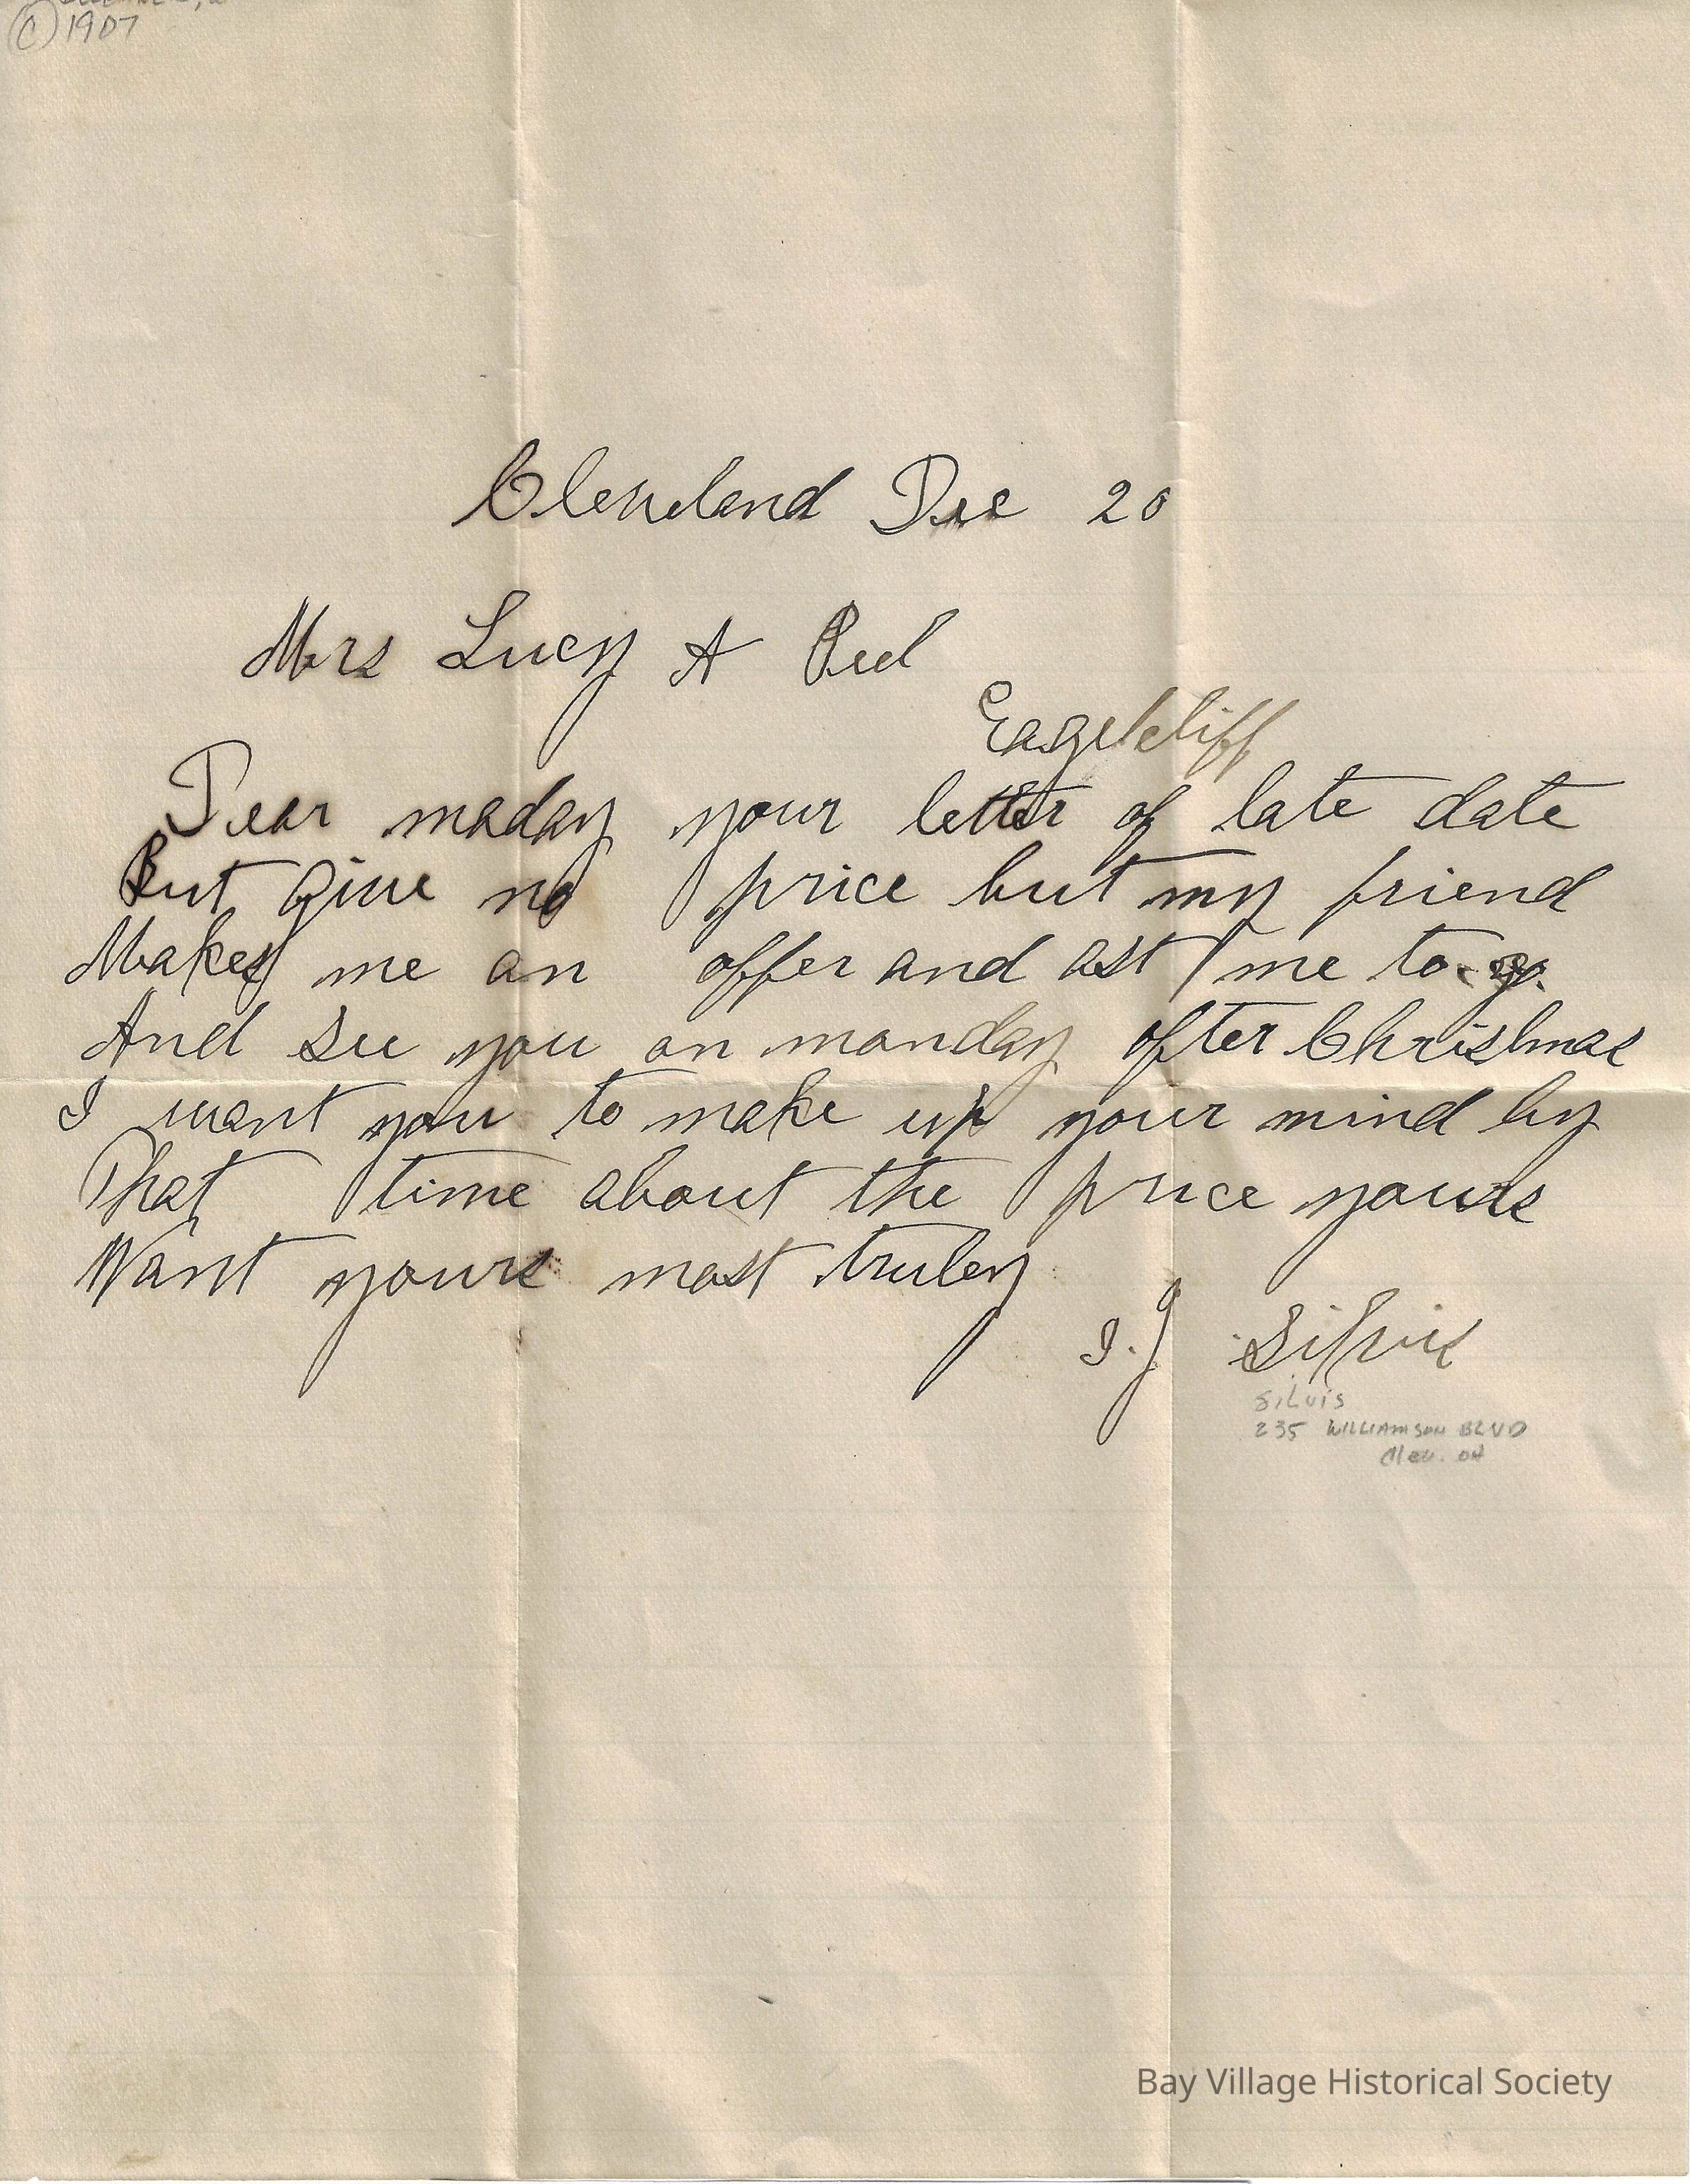 © 1907
Cleveland Dec 20
Mrs Lucy A Reed
Eagelcliff
Dear maday your letter of late date
But give no price but my friend
Makes me an offer and ast me to go
And see you on monday after Christmas
I want you to make up your mind by
That time about the price yours
Want yours most truley
I. J Silvis
SiLvis
235 WILLIAMSON BLVD
Clev. OH
Bay Village Historical Society